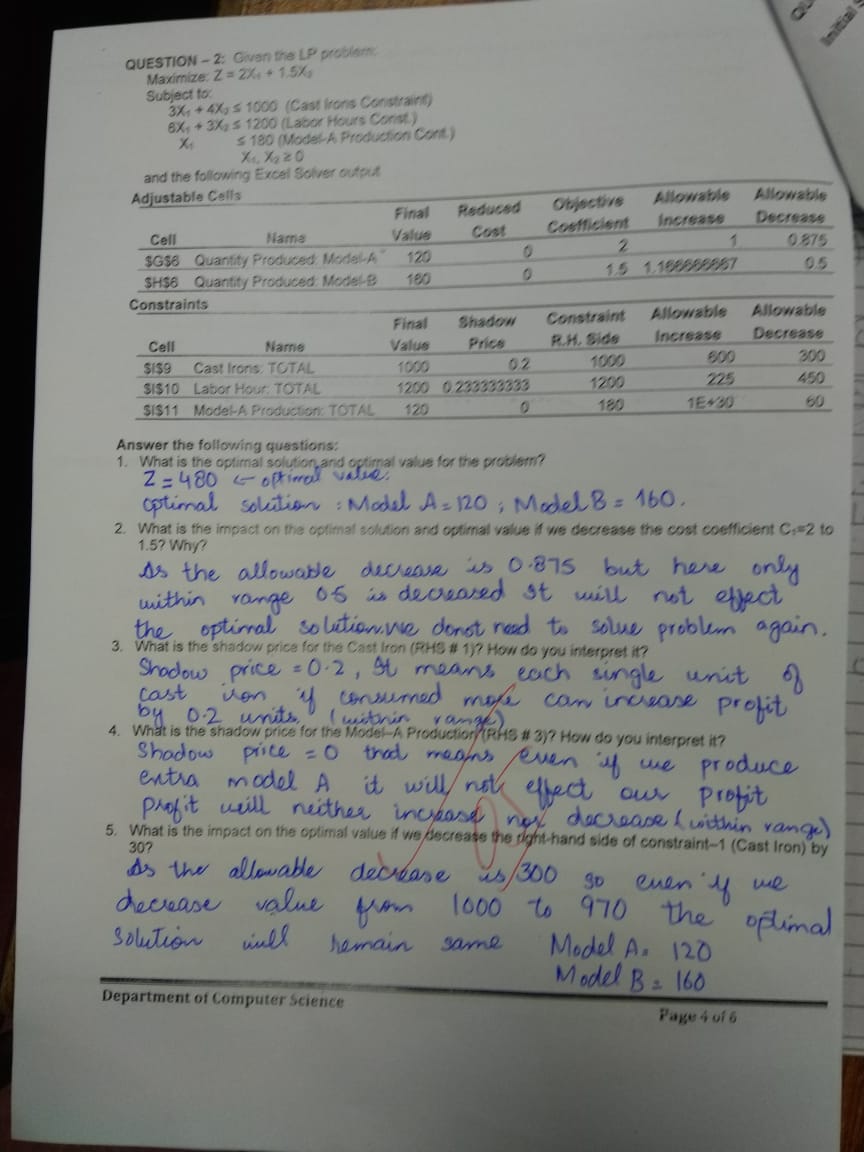 QUESTION – 2: Given the LP problem:
Maximize: Z = 2X₁ + 1.5X₂
Subject to:
3X₁ + 4X₂ ≤ 1000 (Cast Irons Constraint)
6X₁ + 3X₂ ≤ 1200 (Labor Hours Const.)
X₁ ≤ 180 (Model-A Production Cont.)
X₁, X₂ ≥ 0
and the following Excel Solver output
Adjustable Cells
Final Reduced Objective Allowable Allowable
Cell Name Value Cost Coefficient Increase Decrease
$G$6 Quantity Produced: Model-A 120 0 2 1 0.875
$H$6 Quantity Produced: Model-B 160 0 1.5 1.166666667 0.5
Constraints
Final Shadow Constraint Allowable Allowable
Cell Name Value Price R.H. Side Increase Decrease
$I$9 Cast Irons: TOTAL 1000 0.2 1000 600 300
$I$10 Labor Hour: TOTAL 1200 0.233333333 1200 225 450
$I$11 Model-A Production: TOTAL 120 0 180 1E+30 60
Answer the following questions:
1. What is the optimal solution and optimal value for the problem?
Z = 480 ← optimal value.
optimal solution : Model A = 120 ; Model B = 160.
2. What is the impact on the optimal solution and optimal value if we decrease the cost coefficient C₁=2 to
1.5? Why?
As the allowable decrease is 0.875 but here only
within range 0.5 is decreased It will not effect
the optimal solution. we donot need to solve problem again.
3. What is the shadow price for the Cast Iron (RHS # 1)? How do you interpret it?
Shadow price = 0.2, It means each single unit of
cast iron if consumed more can increase profit
by 0.2 units. (within range)
4. What is the shadow price for the Model–A Production (RHS # 3)? How do you interpret it?
Shadow price = 0 that means even if we produce
extra model A it will not effect our profit
profit will neither increase nor decrease (within range)
5. What is the impact on the optimal value if we decrease the right-hand side of constraint–1 (Cast Iron) by
30?
As the allowable decrease is 300 so even if we
decrease value from 1000 to 970 the optimal
Solution will remain same Model A = 120
Model B = 160
Department of Computer Science
Page 4 of 6
Initial